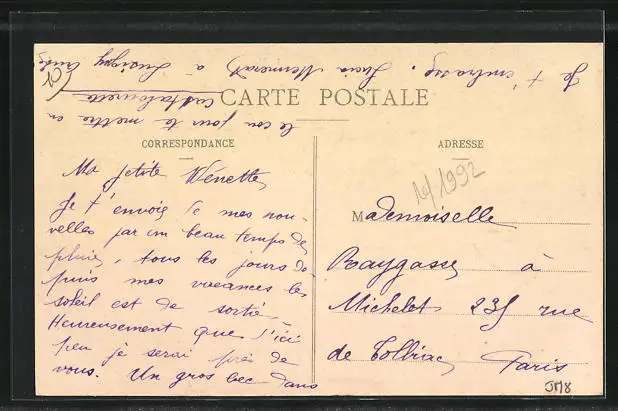 CARTE POSTALE
CORRESPONDANCE
ADRESSE
Ma petite Nénette,
Je t'envoie de mes nou-
velles par un beau temps de
pluie, tous les jours de
puis mes vacances le
soleil est de sortie
Heureusement que d'ici
peu je serai près de
vous. Un gros bec dans
le cou pour te mettre en
Je t'embrasse. Lucia à Lusigny
10/1992
Mademoiselle
Raygasse à
Michelet 235 rue
de Tolbiac Paris
JM8